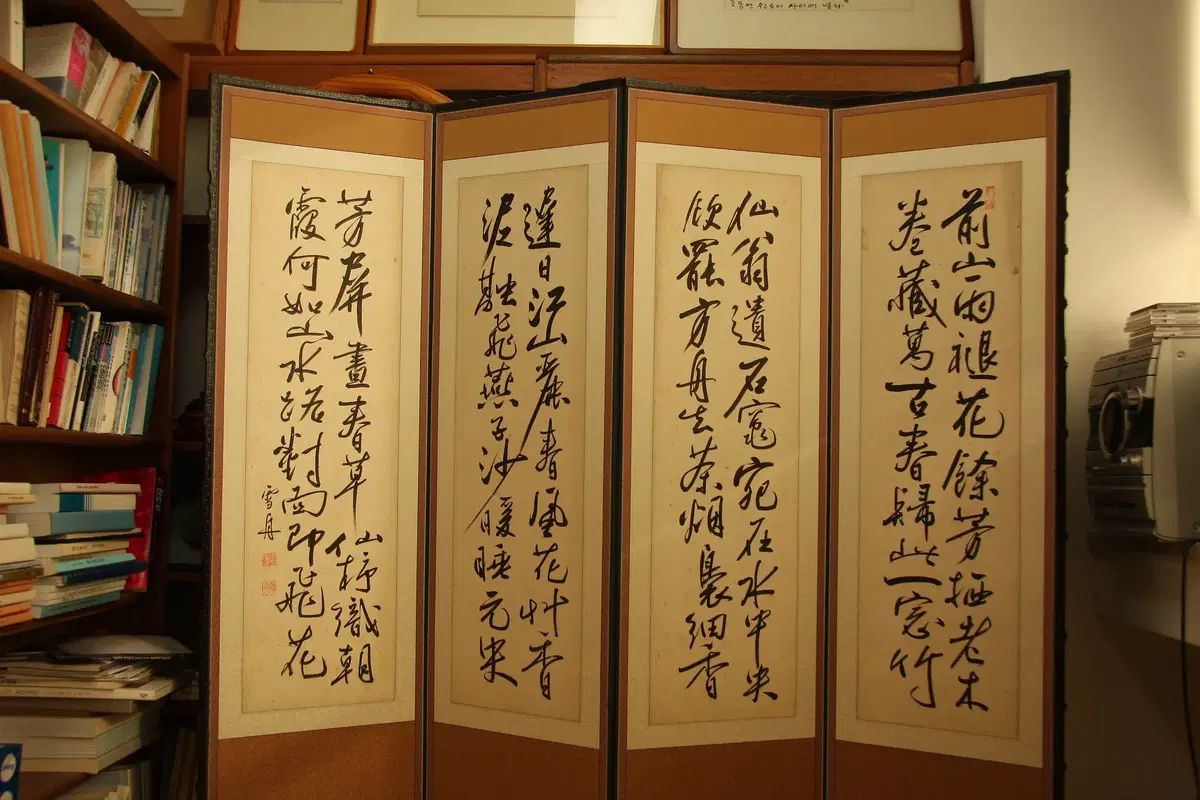 前山雨褪花餘芳栖老木
卷藏萬古春歸此一窓竹
仙翁遺石竈宛在水中央
飮罷方舟去茶烟裊細香
遲日江山麗春風花艸香
泥融飛燕子沙暖睡元央
芳屏畫春草仙杼織朝
霞何如山水路對面即飛花